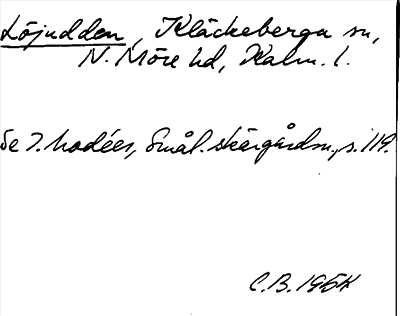 Löjudden, Kläckeberga sn,
N. Möre hd, Kalm. l.
Se I. Modéer, Smål. skärgårdsn., s. 119.
C.B. 1954